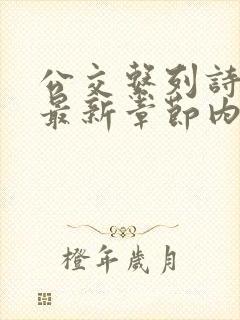 公交繫列詩
最新章節内
橙年歲月